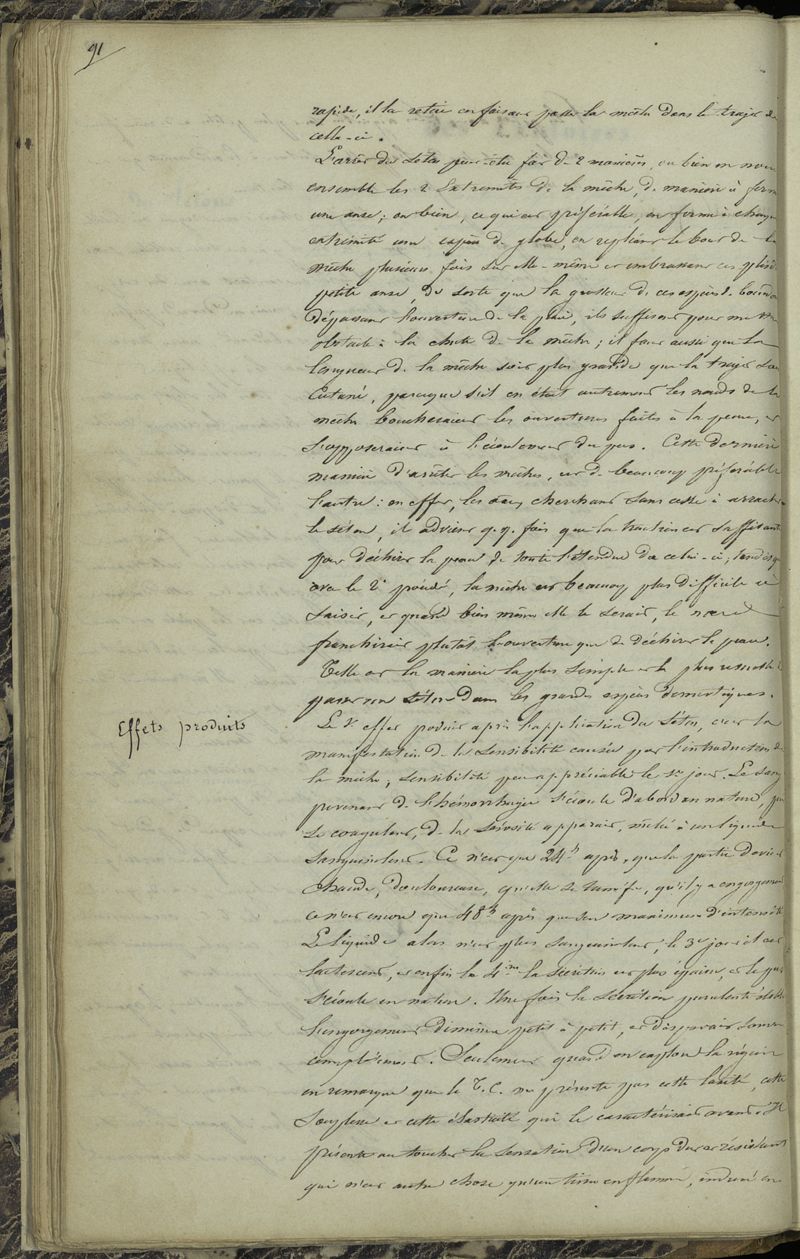 91
rapide, il la retire en faisant passer la mèche dans le trajet de
celle-ci.
L'arrêt du séton peut être fait de 2 manières, ou bien on noue
ensemble les 2 extrémités de la mèche, de manière à form
une anse; ou bien, ce qui est préférable, on forme à chaque
extrémité une espèce de globe, en repliant le bout de la
mèche plusieurs fois sur elle-même et embrassant ces plis d
petite anse, de sorte que la grosseur de ces espèces de
dépassant l'ouverture de la peau, ils suffisent pour mettre
obstacle à la chute de la mèche; il faut aussi que la
longueur de la mèche soit plus grande que le trajet sou
cutané, parceque s'il en était autrement les nœuds de la
mèche boucheraient les ouvertures faites à la peau, et
s'opposeraient à l'écoulement du pus. Cette dernière
manière d'arrêter les mèches, est de beaucoup préférable
l'autre: en effet, les cherchant sans cesse à arracher
le séton, il advient q.q. fois que la traction est suffisante
pour déchirer la peau de toute l'étendue de celui-ci, tandis q
avec le 2e procédé, la mèche est beaucoup plus difficile à
saisir, et quand bien même elle le serait, le nœud
franchirait plutôt l'ouverture que de déchirer la peau.
Telle est la manière la plus simple et la plus usuelle
passer un séton dans les grandes espèces domestiques.
Effets produits
Le 1er effet produit après l'application du séton, c'est la
manifestation de la sensibilité causée par l'introduction de
la mèche, sensibilité peu appréciable le 1er jour. Le sang
provenant de l'hémorrhagie s'écoule d'abord en nature, puis
se coagulant, de la sérosité apparaît, mêlée à un liquide
sanguinolent. Ce n'est que 24h après, que la partie devient
chaude, douloureuse, qu'elle se tuméfie, qu'il y a engorgement
ce n'est encore que 48h après que son maximum d'intensité
Le liquide alors n'est plus sanguinolent, le 3e jour il est
lactescent, et enfin le 4me la sécrétion est plus épaisse, et le pus
s'écoule en nature. Une fois la sécrétion purulente établie
l'engorgement diminue petit à petit, et disparait souvent
complètement. Seulement quand on explore la région
on remarque que le T.C. ne présente pas cette laxité, cette
souplesse et cette élasticité qui le caractérisait avant. Il
présente au toucher la sensation d'un corps dur et résistant
qui n'est autre chose qu'un tissu enflammé, induré en